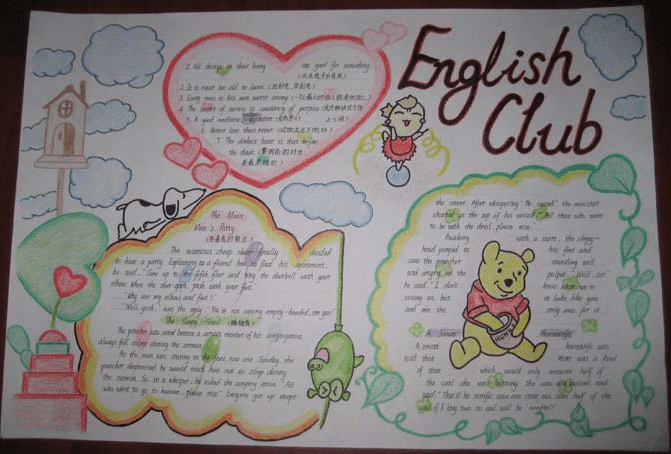 English
Club
1. All things in their being are good for something.
2. It is never too old to learn.
3. Every man is his own worst enemy.
4. The secret of success is constancy of purpose.
5. A good medicine tastes bitter
6. Better late than never.
7. The darkest hour is that before
the dawn.
The Mean
Man's Party
The notorious cheap skate finally decided
to have a party. Explaining to a friend how to find his apartment,
he said, "Come up to the fifth floor and ring the doorbell with your
elbow. When the door opens, push with your foot."
"Why use my elbow and foot?"
"Well, gosh," was the reply, "You're not coming empty-handed, are you?"
The Sleepy
The preacher was vexed because a certain member of his congregation
always fell asleep during the sermon.
As the man was snoring in the front row one Sunday, the
preacher determined he would teach him not to sleep during
the sermon. So, in a whisper, he asked the congregation. "All
who want to go to heaven, please rise." Everyone got up except
the snorer. After whispering "Be seated", the minister
shouted at the top of his voice, "All those who want
to be with the devil, please rise."
Awaking with a start, the sleepy-
head jumped to his feet and
saw the preacher standing tall
and angry in the pulpit. "Well, sir,"
he said, "I don't know what we're
voting on, but it looks like you
and me are the only ones for it.
A Smart Housewife
A smart housewife was
told that there was a kind
of stove which would only consume half of
the coal she was burning. She was very excited, and
said, "That'll be terrific! Since one stove can save half of the
coal, if I buy two, no coal will be needed!"
HUNNY